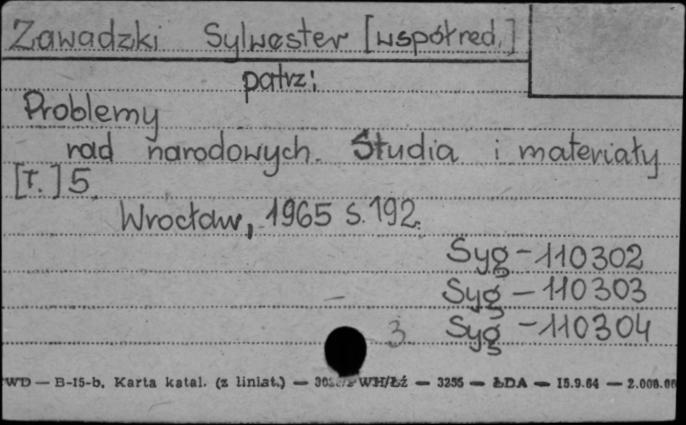 Zawadzki Sylwester [współred.]
patrz:
Problemy
rad narodowych. Studia i materiały
[T.] 5
Wrocław, 1965 s. 192.
Syg - 110302
Syg - 110303
3 Syg - 110304
WD — B-15-b. Karta katal. (z liniat.) — WH/Łż — 3255 — ŁDA — 15.9.64 —